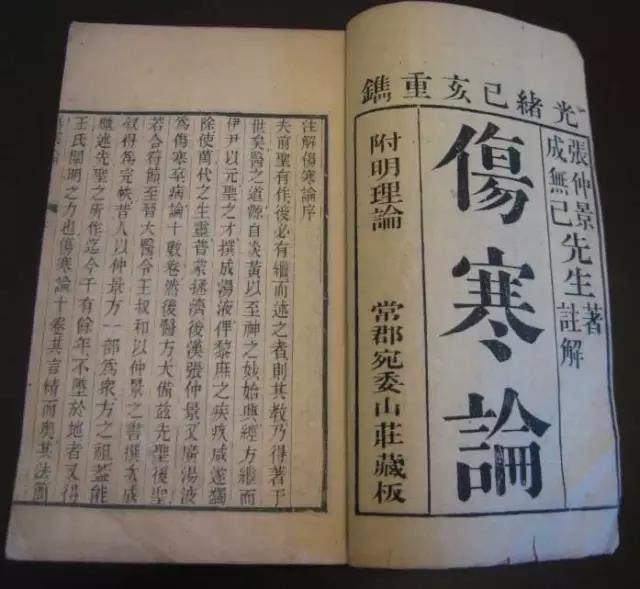 光緒己亥重鐫
張仲景先生著
成無己註解
傷寒論
附明理論
常郡宛委山莊藏板
注解傷寒論序
夫前聖有作後必有繼而述之者則其教乃得著于
世矣醫之道源自炎黃以至神之妙始興經方繼而
伊尹以元聖之才撰成湯液俾黎庶之疾疢咸遂蠲
除使萬代之生靈普蒙拯濟後漢張仲景又廣湯液
為傷寒卒病論十數卷然後醫方大備茲先聖後聖
若合符節至晉太醫令王叔和以仲景之書撰次成
敘得為完帙昔人以仲景方一部為眾方之祖蓋能
繼述先聖之所作迄今千有餘年不墜於地者又得
王氏闡明之力也傷寒論十卷其言精而奧其法簡